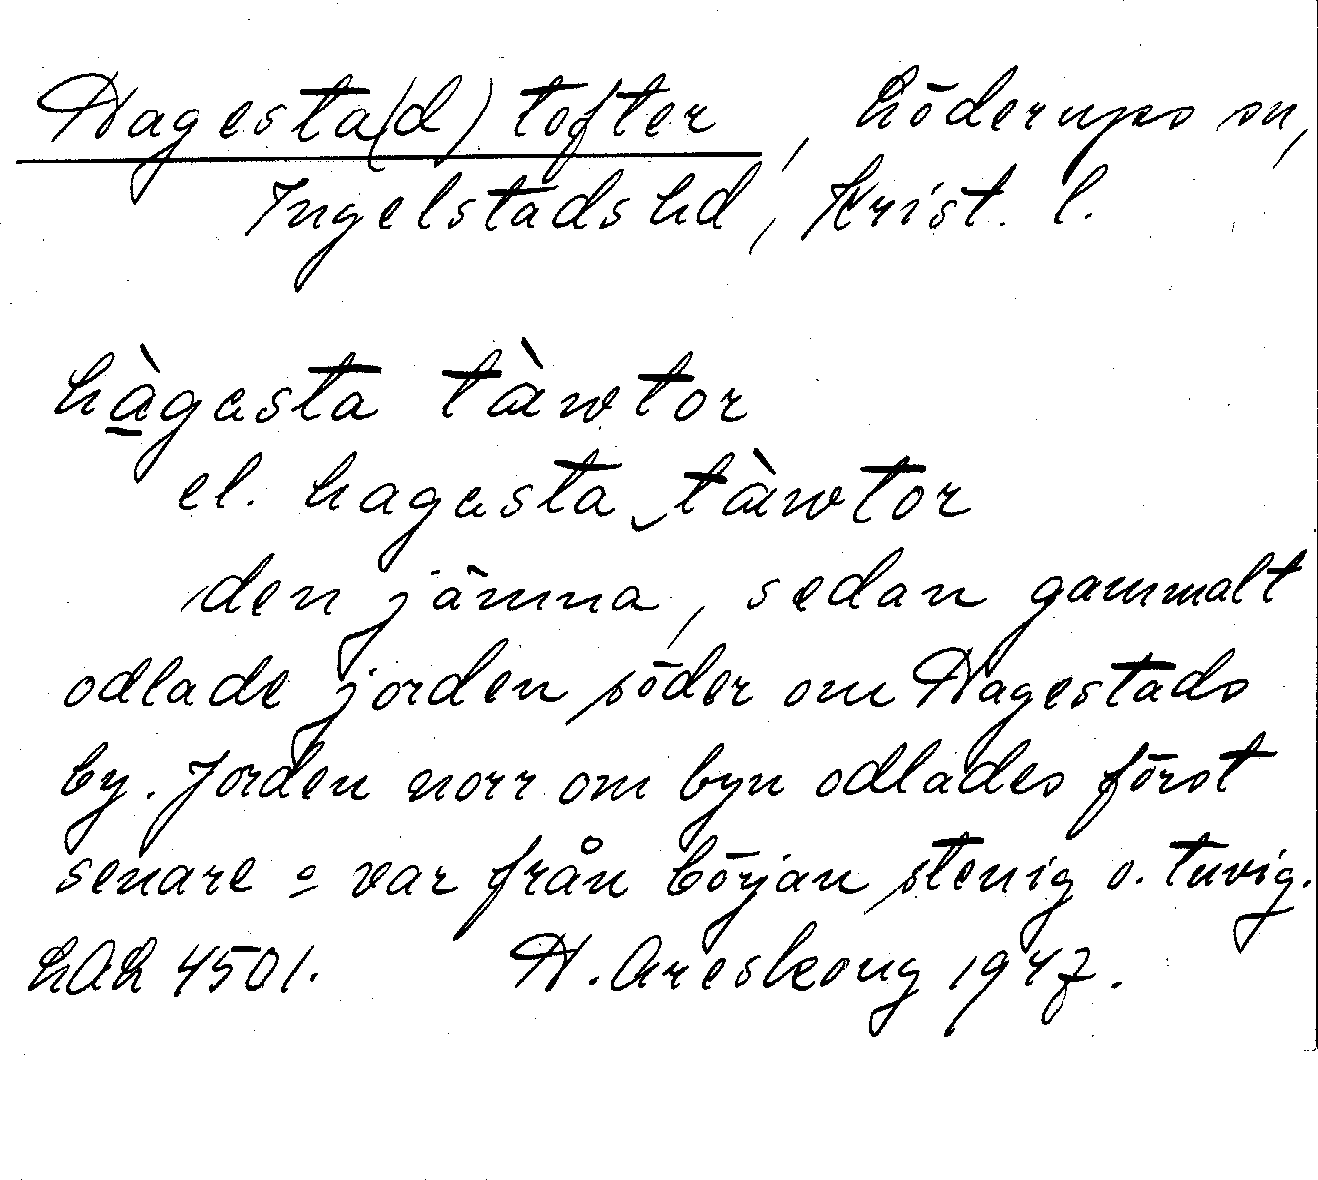 Hagesta(d) tofter, Löderups sn,
Ingelstads hd, Krist. l.
hàgasta tàwtor
el. hagasta tàwtor
den jämna, sedan gammalt
odlade jorden söder om Hagestads
by. Jorden norr om byn odlades först
senare o var från början stenig o. tuvig.
LAL 4501. H. Areskoug 1947.